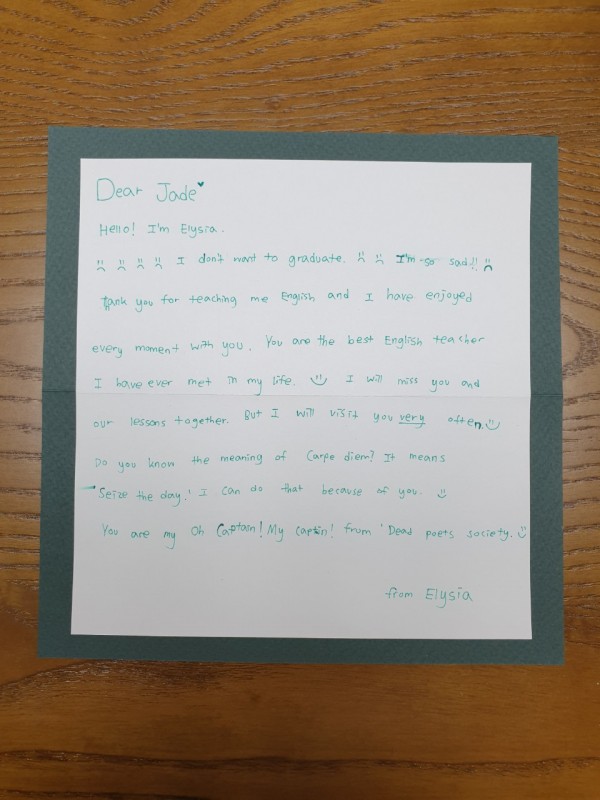 Dear Jade♥
Hello! I'm Elysia.
I don't want to graduate. I'm so sad!!
Tank you for teaching me English and I have enjoyed
every moment with you. You are the best English teacher
I have ever met in my life. I will miss you and
our lessons together. But I will visit you very often.
Do you know the meaning of Carpe diem? It means
'Seize the day.' I can do that because of you.
You are my Oh Captain! My captin! from 'Dead poets society.
from Elysia